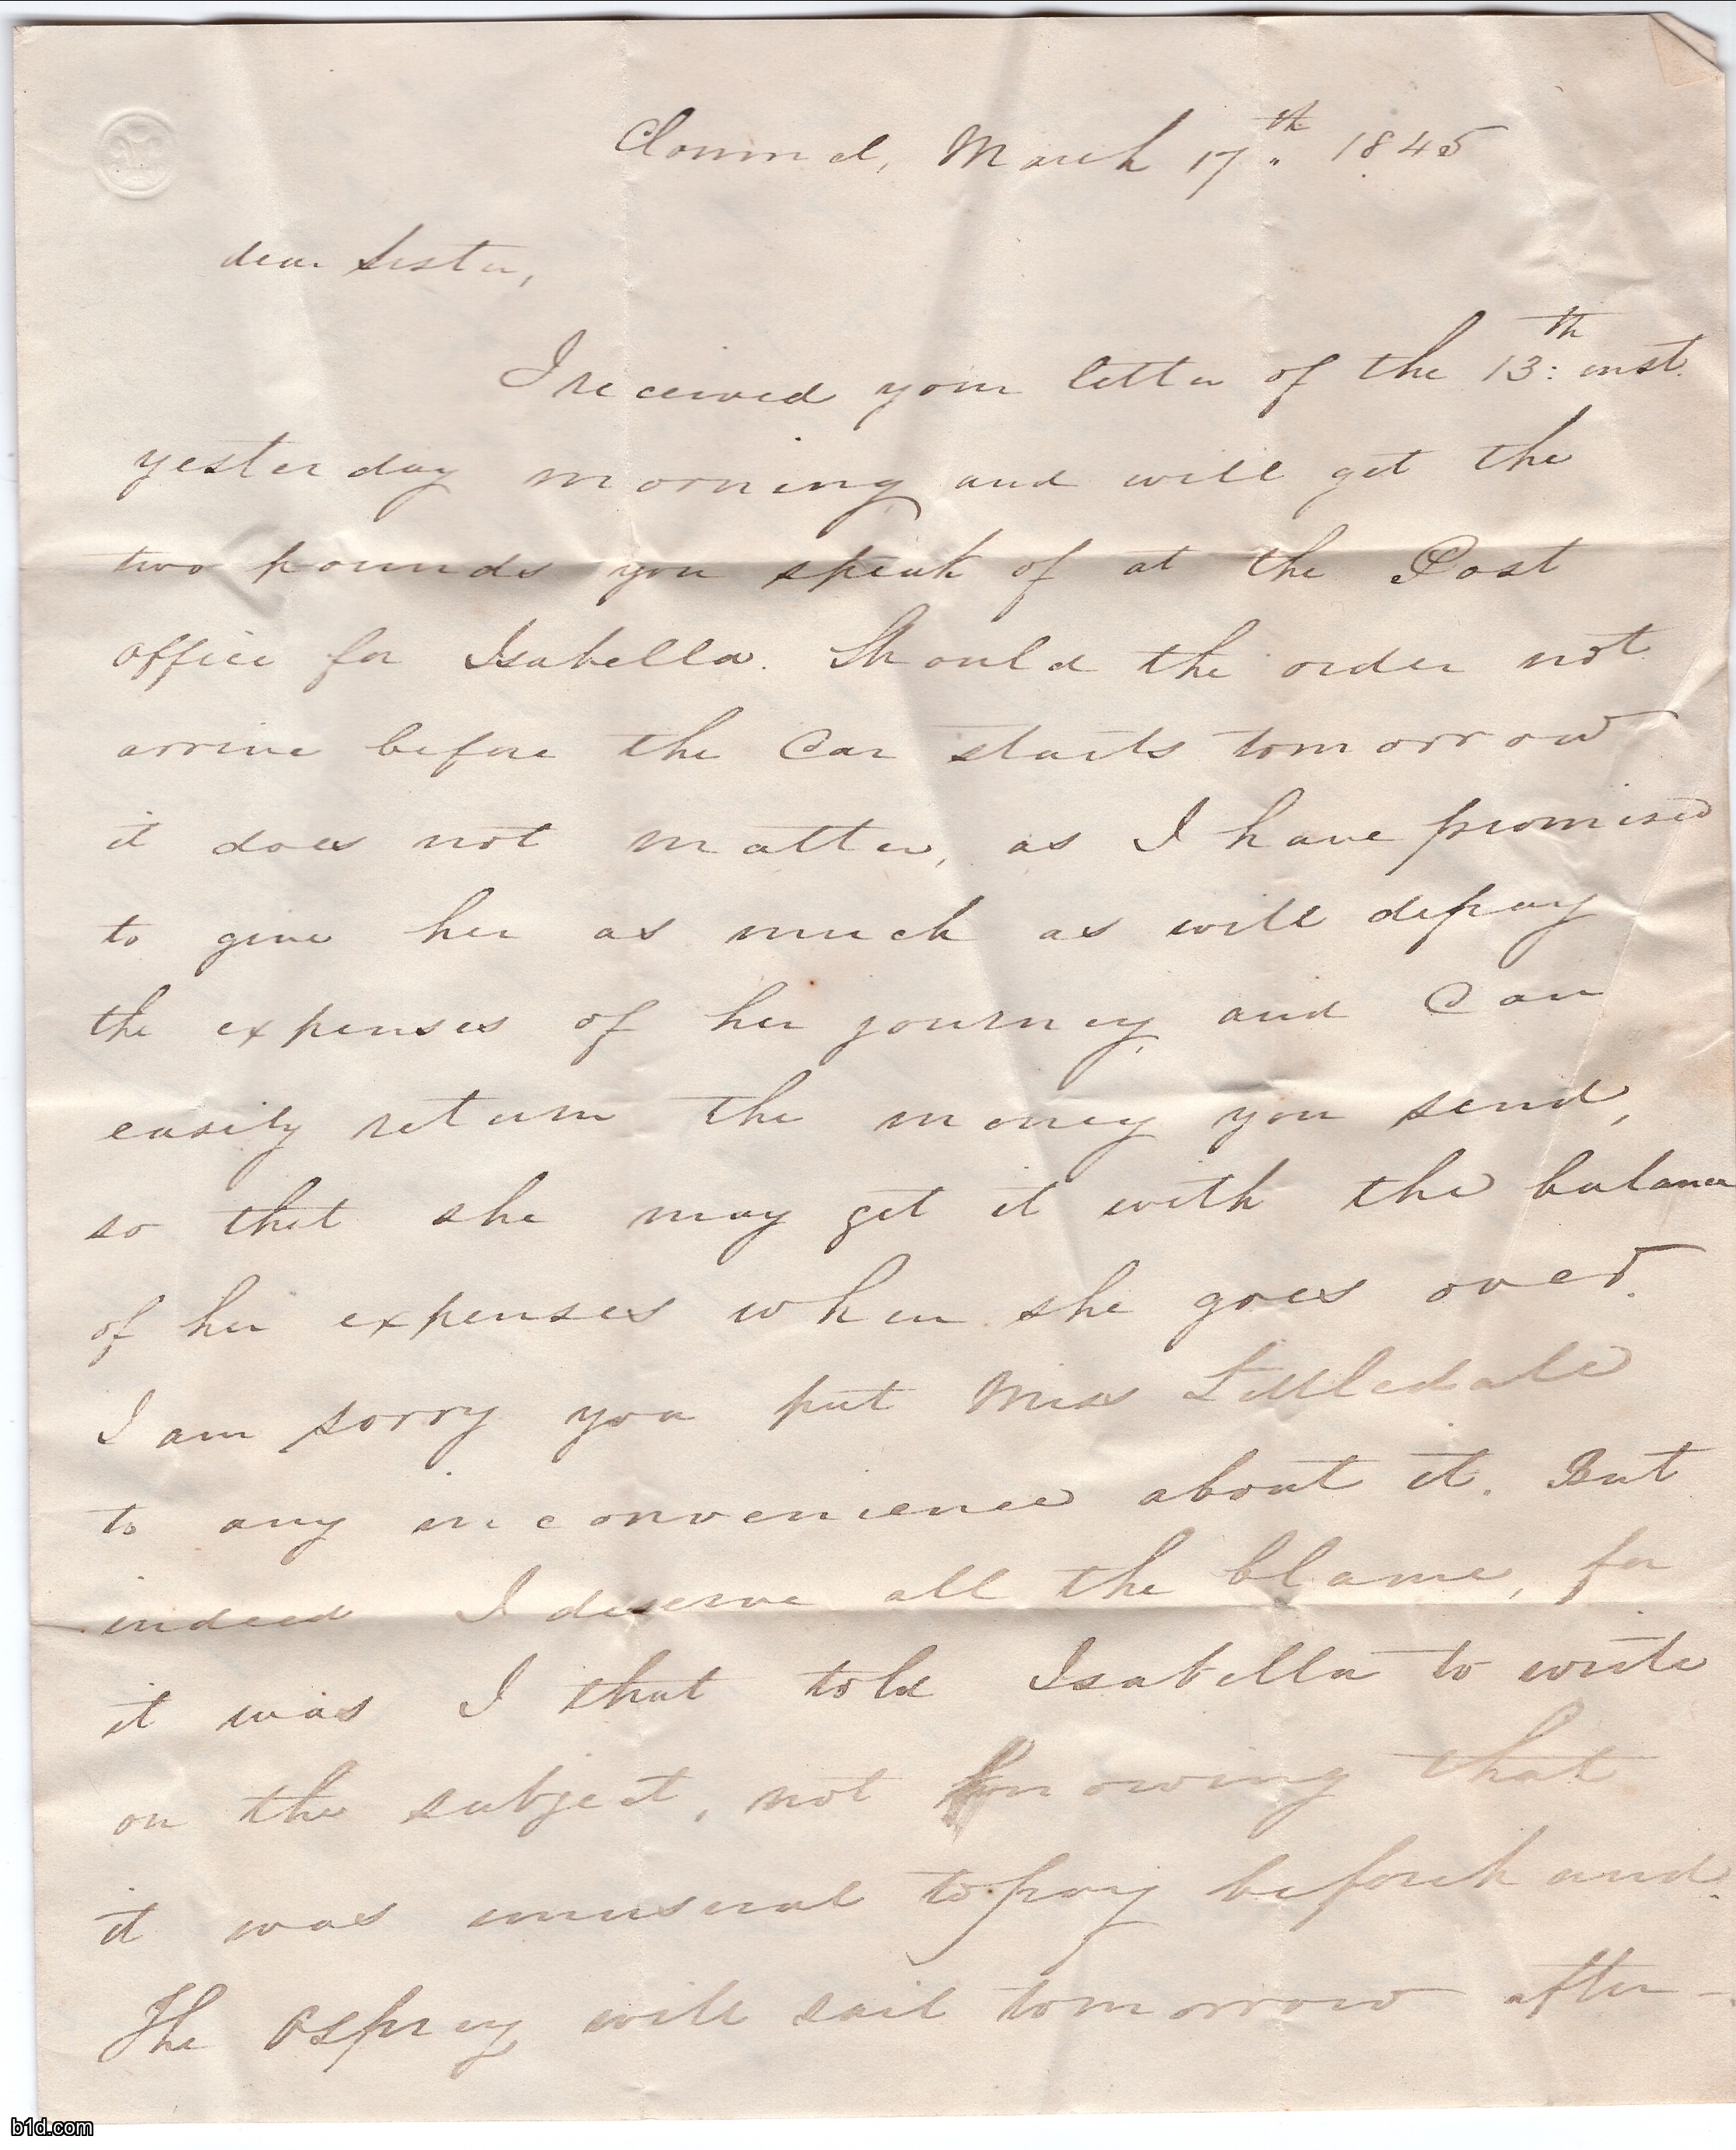 Clonmel, March 17th. 1845
dear Sister,
I received your letter of the 13th: inst.
yesterday morning and will get the
two pounds you speak of at the Post
office for Isabella. Should the order not
arrive before the Car starts tomorrow
it does not matter, as I have promised
to give her as much as will defray
the expenses of her journey, and Can
easily return the money you send,
so that she may get it with the balance
of her expenses when she goes over.
I am sorry you put Miss Littledale
to any inconvenience about it. But
indeed I deserve all the blame, for
it was I that told Isabella to write
on the subject, not knowing that
it was unusual to pay beforehand.
The Osprey will sail tomorrow after-
b1d.com